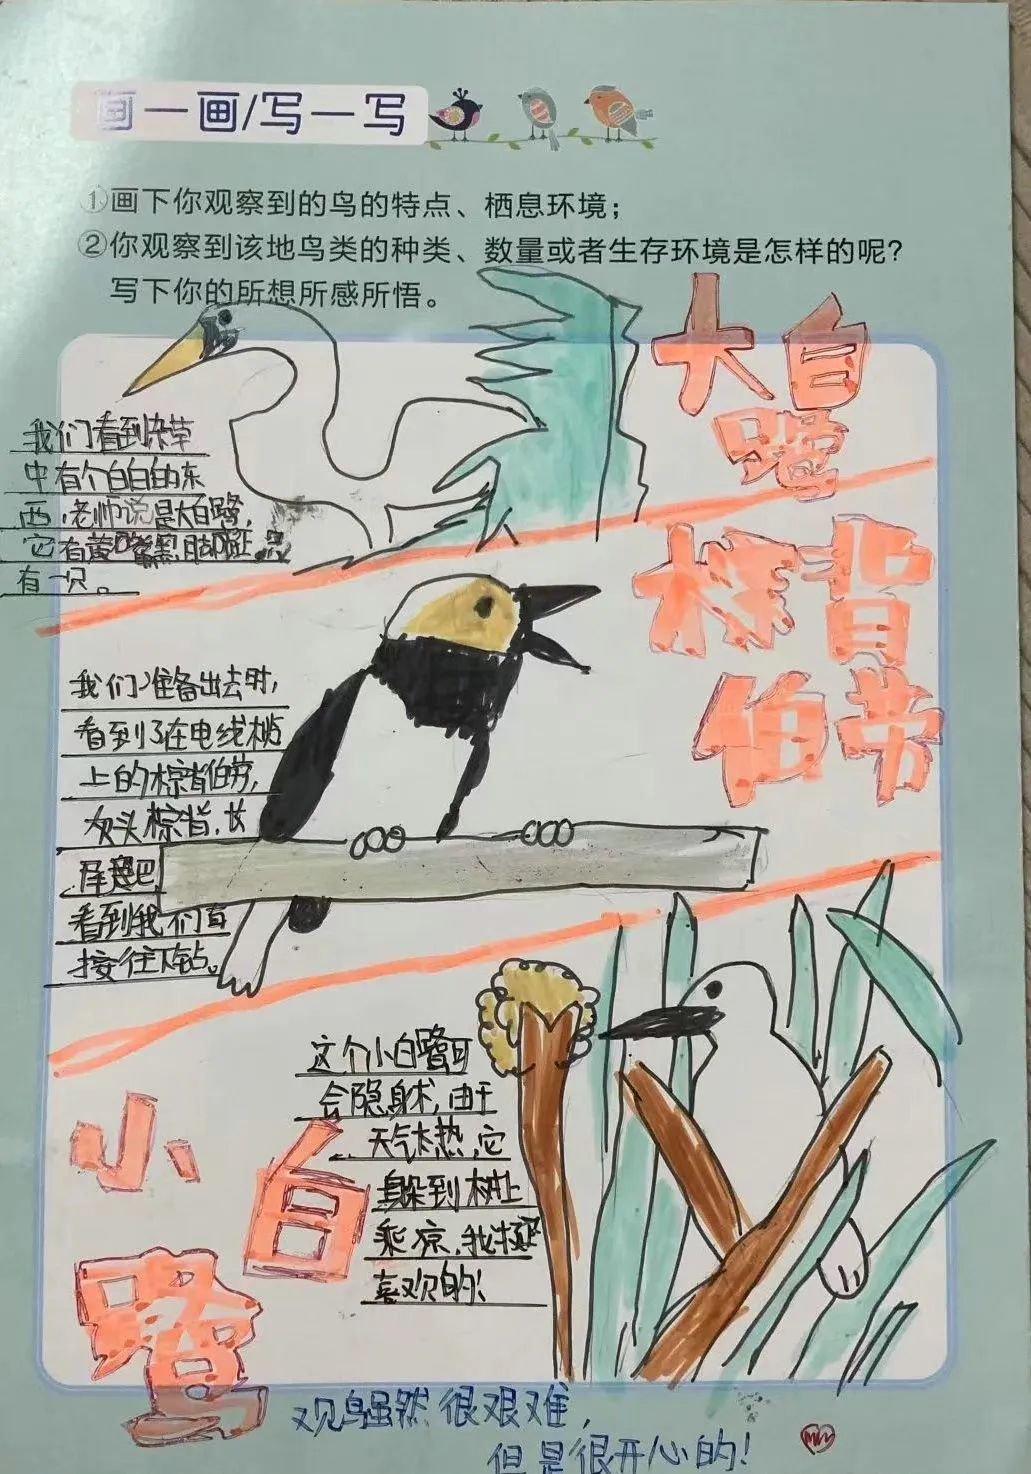 画一画/写一写
①画下你观察到的鸟的特点、栖息环境；
②你观察到该地鸟类的种类、数量或者生存环境是怎样的呢？
写下你的所想所感所悟。
大白
鹭
我们看到杂草
中有个白白的东
西，老师说是大白鹭，
它有黄嘴黑脚，只
有一只。
棕背
伯劳
我们准备出去时，
看到了在电线杆
上的棕背伯劳，
灰头棕背，长
尾巴
看到我们直
接往下钻。
小
白
鹭
这个小白鹭可
会隐身术，由于
天气太热，它
躲到树上
乘凉，我挺
喜欢的！
观鸟虽然很艰难，
但是很开心的！